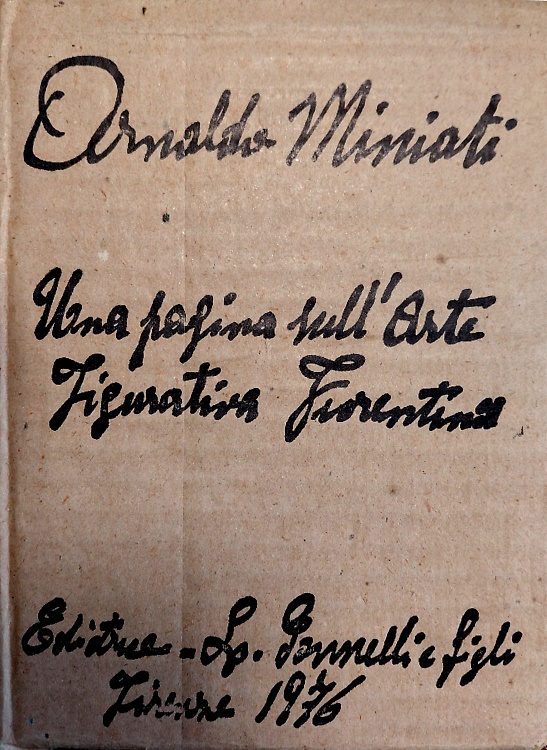 Arnaldo Miniati
Una pagina sull'Arte
Figurativa Fiorentina
Editrice - Sp. Pennelli e figli
Firenze 1976